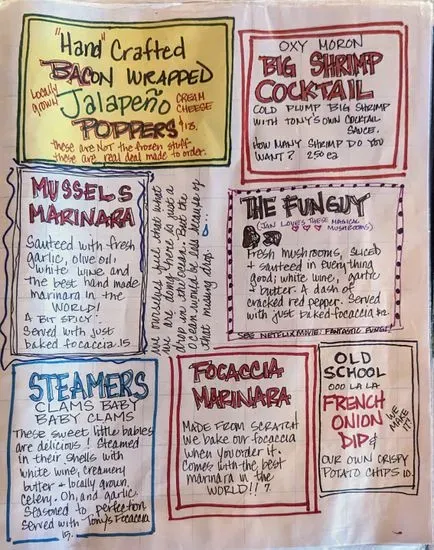 "Hand" Crafted
BACON WRAPPED
Locally
grown
Jalapeño
CREAM
CHEESE
POPPERS
$13.
these are Not the frozen stuff.
these are real deal made to order.
OXY MORON
BIG SHRIMP
COCKTAIL
COLD PLUMP BIG SHRIMP
WITH TONY'S OWN COCKTAIL
SAUCE.
HOW MANY SHRIMP DO YOU
WANT? 2.50 ea
MUSSELS
MARINARA
Sauteed with fresh
garlic, olive oil,
white wine and
the best hand made
marinara in the
WORLD!
A BIT SPICY.
Served with just
baked focaccia. 15.
We ourselves feel that what
we are doing is just a
drop in the ocean. But the
ocean would be less because of
that missing drop.
THE FUNGUY
(JAN LOVES THESE MAGICAL
MUSHROOMS)
Fresh mushrooms, sliced
+ sauteed in everything
good; white wine, garlic
+ butter. A dash of
cracked red pepper. Served
with just baked focaccia.
SEE NETFLIX MOVIE: FANTASTIC FUNGI!
STEAMERS
CLAMS BABY
BABY CLAMS
These sweet little babies
are delicious! Steamed
in their shells with
white wine, creamery
butter + locally grown,
celery. Oh, and garlic.
Seasoned to perfection
Served with Tony's Focaccia
15.
FOCACCIA
MARINARA
MADE FROM SCRATCH
WE bake our focaccia
when you order it.
Comes with the best
marinara in the
WORLD!! 7.
OLD
SCHOOL
OOO LA LA
FRENCH
ONION
DIP &
WE MAKE
IT!
OUR OWN CRISPY
POTATO CHIPS 10.